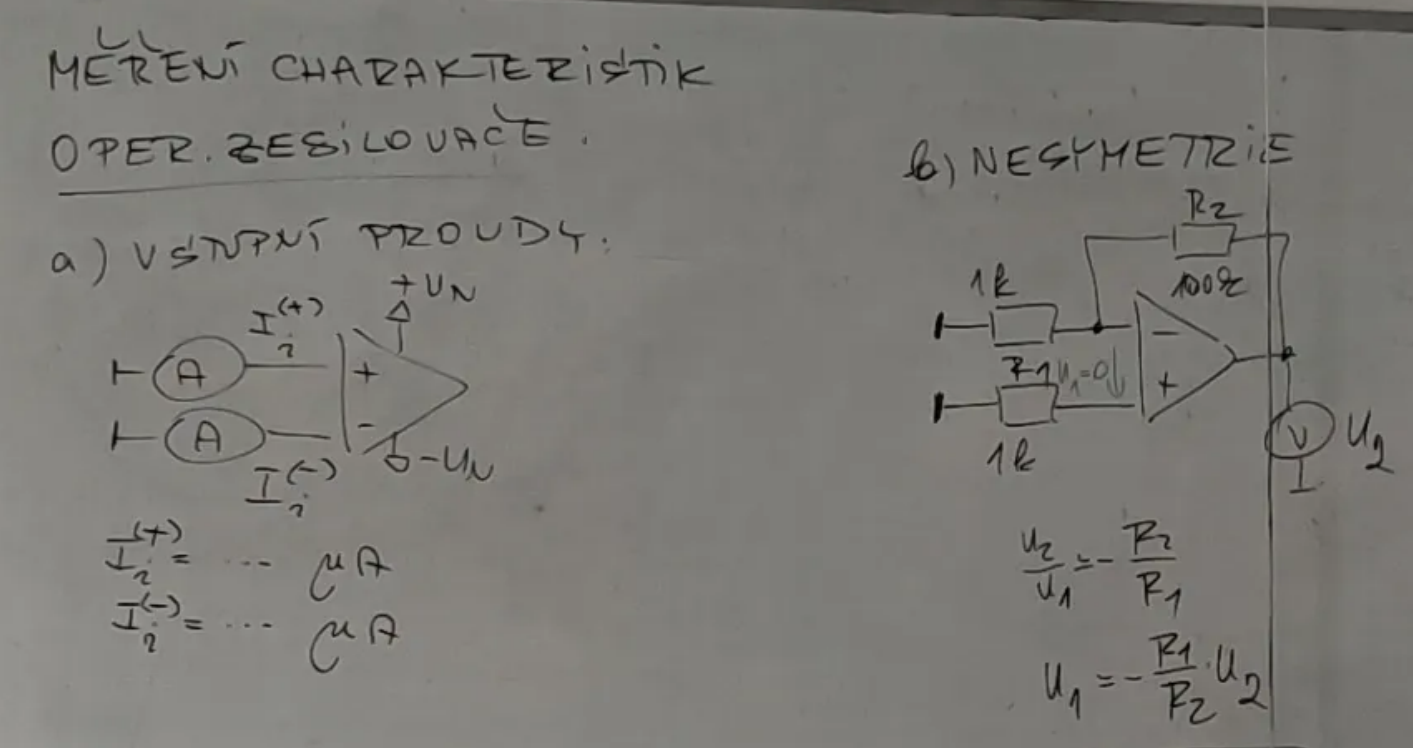 MĚŘENÍ CHARAKTERISTIK
OPER. ZESILOVAČE.
a) VSTUPNÍ PROUDY:
+UN
Ii(+)
A
+
A
-
-UN
Ii(-)
Ii(+) = ... μA
Ii(-) = ... μA
b) NESYMETRIE
R2
100k
1k
R1
U1=0
-
+
1k
V
U2
U2/U1 = - R2/R1
U1 = - R1/R2 · U2